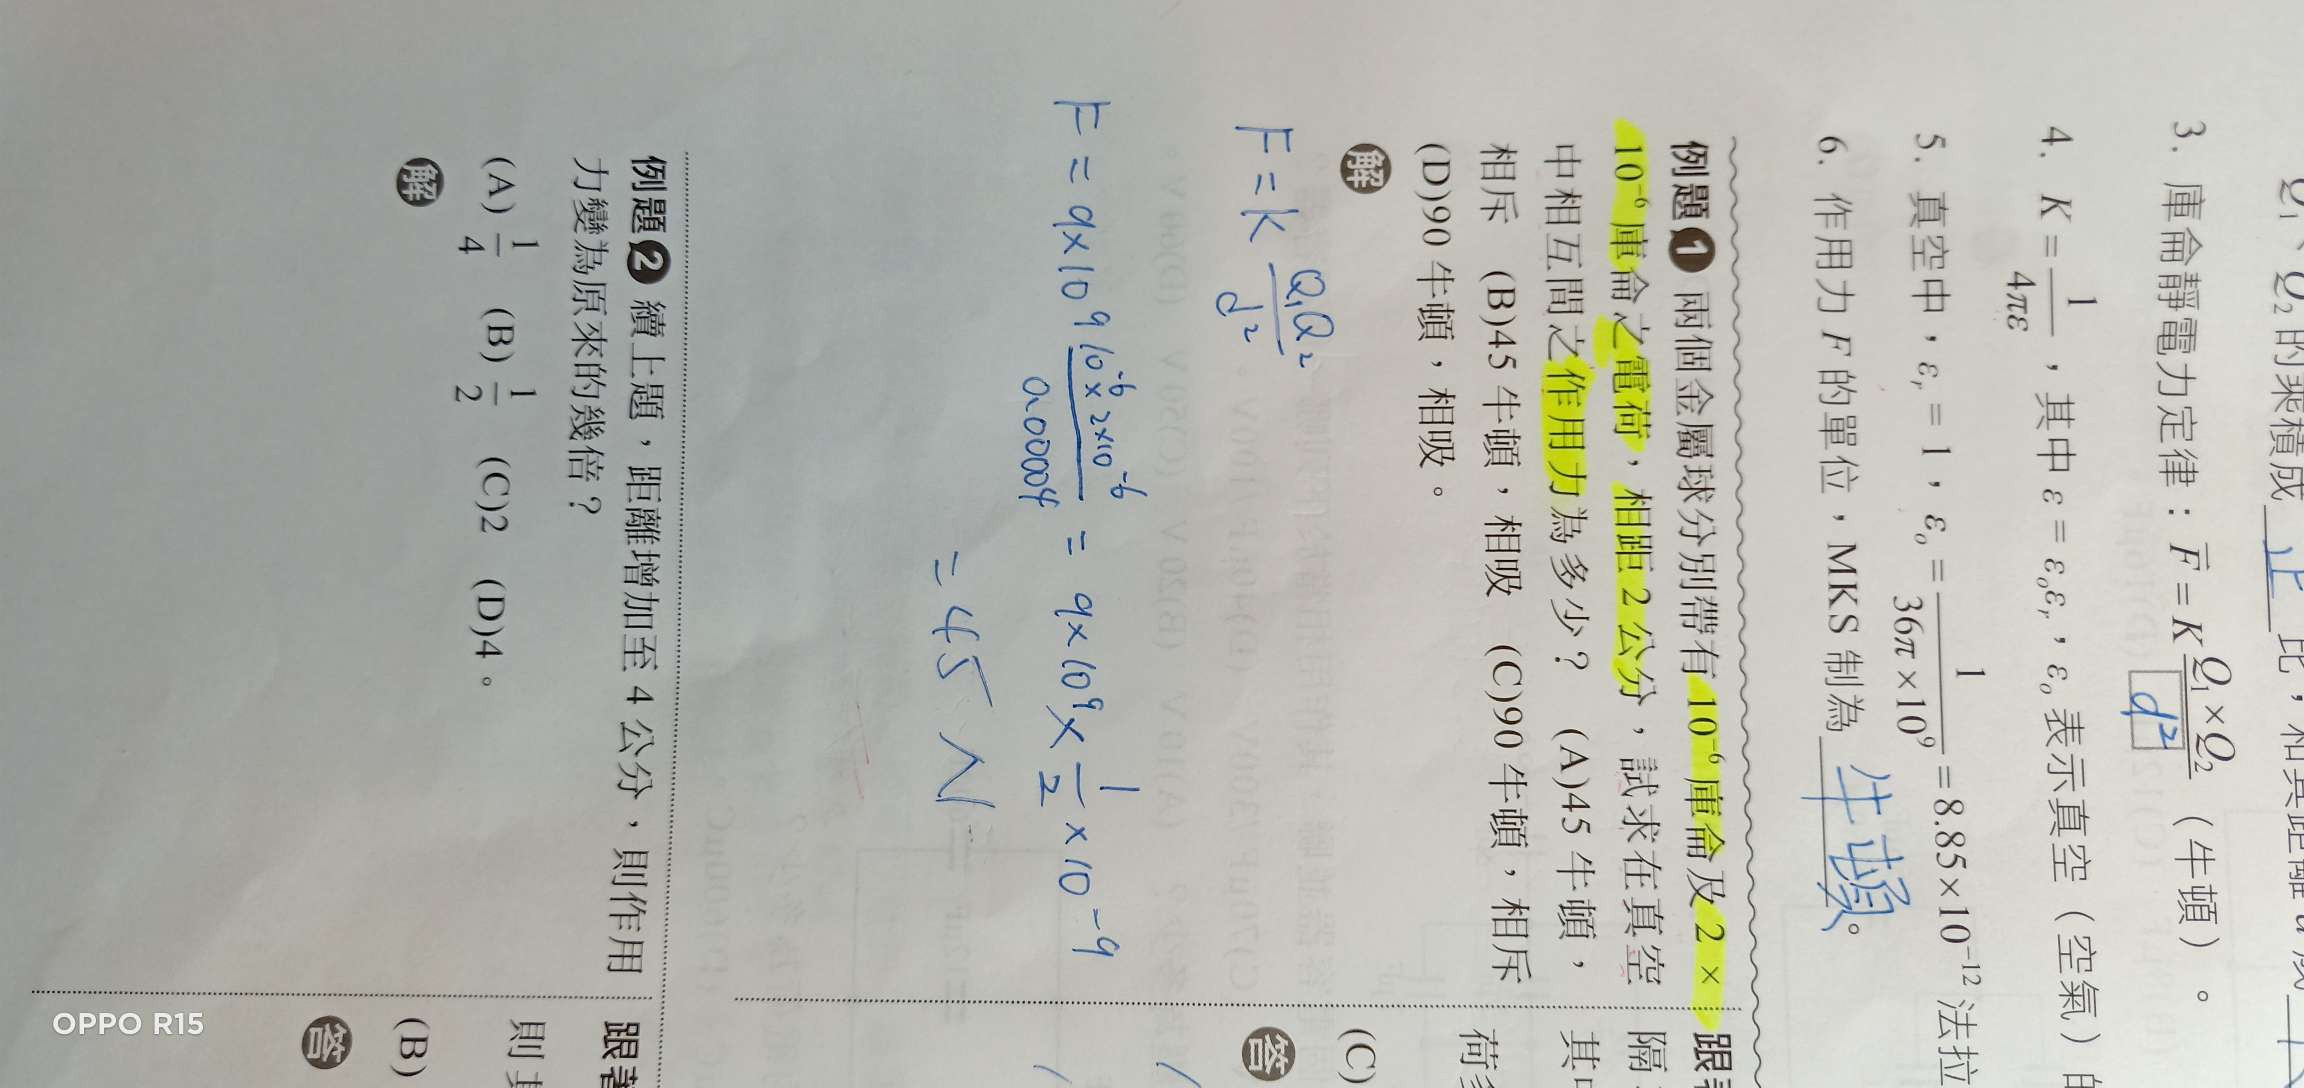 Q₁、Q₂的乘積成 正 比，和其距離
3. 庫侖靜電力定律：F = K Q₁×Q₂ / d² （牛頓）。
4. K = 1 / 4πε ，其中 ε = εₒεᵣ，εₒ表示真空（空氣）的
5. 真空中，εᵣ = 1，εₒ = 1 / 36π×10⁹ = 8.85×10⁻¹² 法拉
6. 作用力 F 的單位，MKS 制為 牛頓。
例題1 兩個金屬球分別帶有 10⁻⁶庫侖及 2×
10⁻⁶庫侖之電荷，相距 2 公分，試求在真空
中相互間之作用力為多少？ (A)45 牛頓，
相斥 (B)45 牛頓，相吸 (C)90 牛頓，相斥
(D)90 牛頓，相吸。
解
F = K Q₁Q₂ / d²
F = 9×10⁹ 10⁻⁶×2×10⁻⁶ / 0.00004 = 9×10⁹× 1/2 ×10⁻⁹
= 45 N
例題2 續上題，距離增加至 4 公分，則作用
力變為原來的幾倍？
(A) 1/4 (B) 1/2 (C)2 (D)4。
解
跟著
隔
其中
荷
(C)
答
跟著
則其
(B)
答
OPPO R15